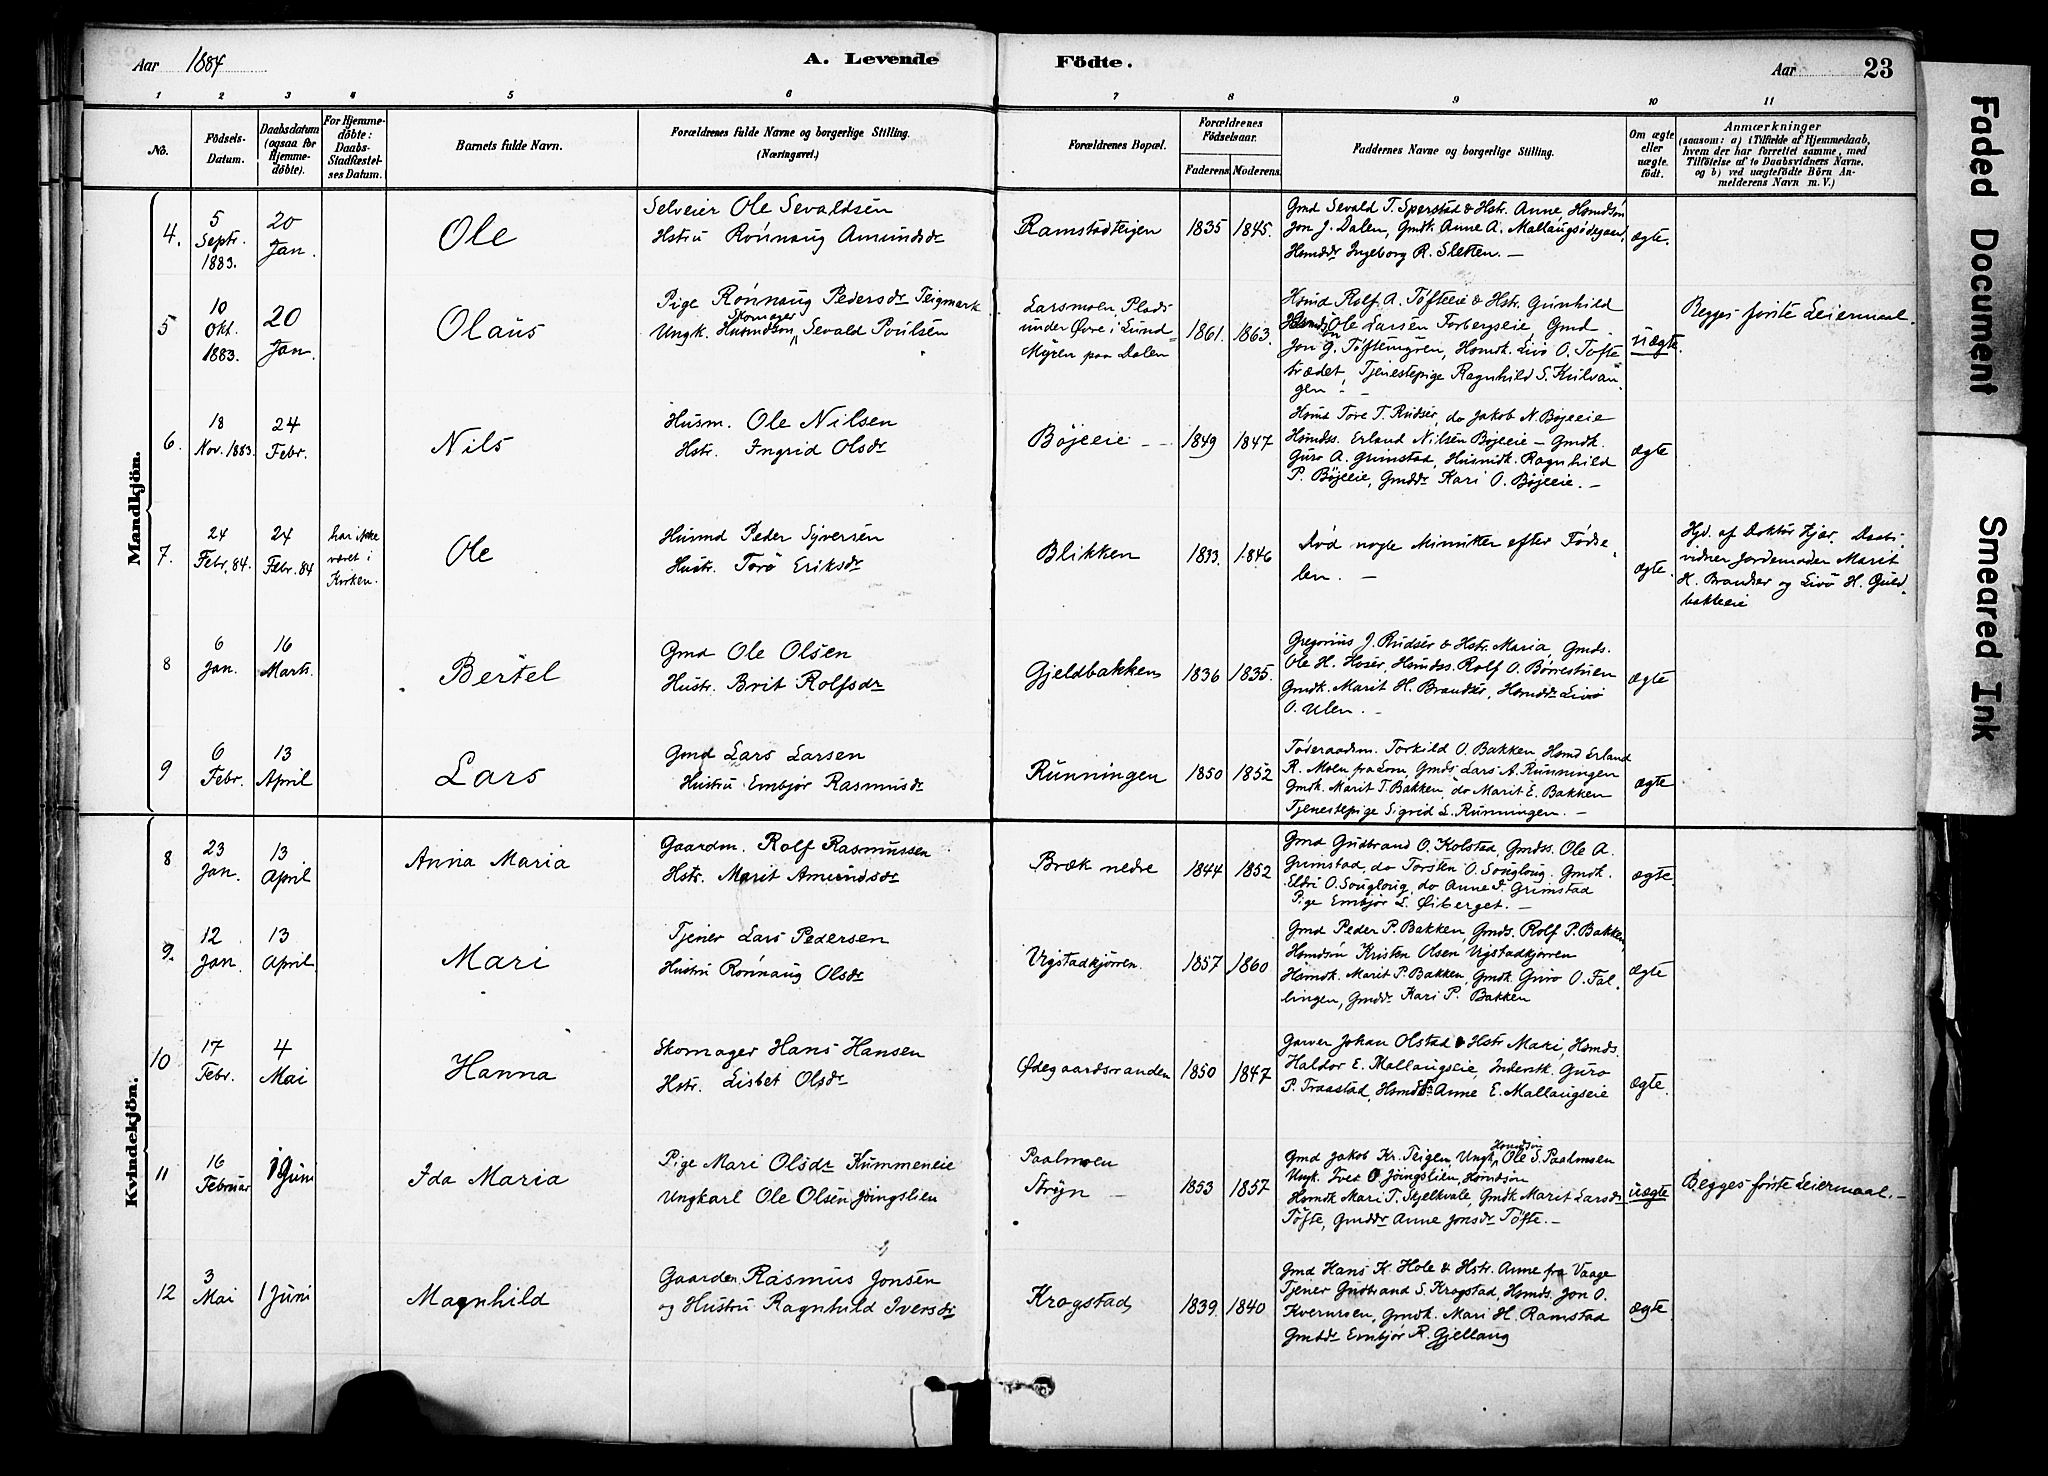 Aar 1884
A. Levende Födte.
Aar 23
1 2 3 4 5 6 7 8 9 10 11
No.
Födsels-Datum.
Daabsdatum (ogsaa for Hjemme-döbte).
For Hjemme-döbte: Daabs-Stadfæstel-ses Datum.
Barnets fulde Navn.
Forældrenes fulde Navne og borgerlige Stilling. (Næringsvei.)
Forældrenes Bopæl.
Forældrenes Födselsaar.
Faderens Moderens.
Faddernes Navne og borgerlige Stilling.
Om ægte eller uægte født.
Anmærkninger
(saasom: a) i Tilfælde af Hjemmedaab,
hvem der har forrettet samme, med
Tilföielse af to Daabsvidners Navne,
og b) ved uægtefödte Börn An-
melderens Navn m. V.)
Mandkjön.
4. 5 Septr. 1883. 20 Jan. Ole
Selveier Ole Sevaldsen
Hstru Rønnaug Amundsdr
Ramstadteigen 1835 1845.
Gmd Sevald T. Sperstad & Hstr. Anne, Hsmdsøn
Jon J. Dalen, Gmdk. Anne A. Mallaugsødegaard,
Hsmddr Ingeborg R. Sletten. —
ægte.
5 10 Okt. 1883. 20 Jan. Olaus
Pige Rønnaug Pedersdr Teigmark
Skomager
Ungk. Husmdsøn, Sevald Poulsen
Larsmoen, Plads
under Øvre i Lund
Myren paa Dalen
1861. 1863.
Hsmd Rolf A. Tøfteeie & Hstr. Gunhild
Ole Larsen Forbergseie, Gmd
Jon G. Tøftemyren, Hsmdk. Livø O. Tofte
trædet, Tjenestepige Ragnhild S. Kulvan-
gen —
uægte.
Begges første Leiermaal.
6. 18 Nov. 1883. 24 Febr. Nils
Husm. Ole Nilsen
Hstr. Ingrid Olsdr
Bøjeeie — 1849 1847
Hsmd Tore T. Rudser, do Jakob N. Bøjeeie
Hsmdss. Erland Nilsen Bøjeeie — Gmdk.
Guro A. Grimstad, Husmdk. Ragnhild
P. Bøjeeie, Gmddr Kari O. Bøjeeie. —
ægte
7. 24 Febr. 84. 24 Febr. 84 har ikke været i Kirken. Ole
Husmd Peder Syversen
Hustr. Torø Eriksdr
Blikken 1833. 1846
Død nogle Minutter efter Fødse-
len. —
ægte.
Hjd. af Doktor Kjær. Daabs-
vidner Jordemoder Marit
H. Brandser og Livø H. Guld-
bakkeeie
8 6 Jan. 16 Marts. Bertel
Gmd Ole Olsen
Hustr. Brit Rolfsdr
Gjeldbakken 1836 1835.
Gregorius J. Rudser & Hstr. Maria, Gmds.
Ole H. Hoser, Hsmdss. Rolf O. Børrestuen
Gmdk. Marit H. Brandser, Hsmddr Livø
O. Ulen. —
ægte
9 6 Febr. 13 April Lars
Gmd Lars Larsen
Hustru Embjør Rasmusdr
Runningen 1850 1852
Føderaadsm. Torkild O. Bakken Hsmd Erland
R. Moen fra Lom, Gmds Lars A. Runningen
Gmdk. Marit T. Bakken, do Marit E. Bakken
Tjenestepige Sigrid L. Runningen. —
ægte
Kvindekjön.
8 23 Jan. 13 April Anna Maria
Gaardm. Rolf Rasmussen
Hstr. Marit Amundsdr
Bræk nedre 1844 1852
Gmd Gudbrand O. Kolstad Gmdss. Ole A.
Grimstad, do Torsten O. Sougloug. Gmdk.
Eldri O. Sougloug, do Anne I. Grimstad
Pige Embjør L. Øiberget. —
ægte.
9. 12 Jan. 13 April Mari
Tjener Lars Pedersen
Hustru Rønnaug Olsdr
Vigstadkjørren. 1857 1860
Gmd Peder P. Bakken, Gmds. Rolf P. Bakken,
Hsmdsøn Kristen Olsen Vigstadkjørren
Hsmdk. Marit P. Bakken, Gmdk Guro O. Fal-
lingen, Gmddr Kari P. Bakken
ægte
10 17 Febr. 4 Mai Hanna
Skomager Hans Hansen
Hstr. Lisbet Olsdr
Ødegaardsranden 1850 1847
Garver Johan Olstad & Hstr Mari, Hsmds.
Haldor E. Mallaugseie, Inderstk. Guro
P. Traastad, Hsmddr Anne E. Mallaugseie
ægte.
11 16 Februar 1 Juni Ida Maria
Pige Mari Olsdr Kummeneie
Ungkarl Ole Olsen Jøingslien
Paalmoen
Stryn — 1853 1857
Hsmdsøn
Gmd Jakob Kr. Teigen Ungk. Ole S. Paalmoen
Ungk. Iver O Jøingslien, Hsmdsøn
Hsmdk Mari T. Skjelkvale, Gmdk Marit Larsdr
Tøfte, Gmddr Anne Jonsdr Tøfte. —
uægte
Begges første Leiermaal. —
12 3 Mai 1 Juni Magnhild
Gaardm. Rasmus Jonsen
og Hustru Ragnhild Iversdr
Krogstad 1839. 1840
Gmd Hans K. Hole & Hstr. Anne fra Vaage
Tjener Gudbrand S. Krogstad, Hsmds. Jon O.
Kvernroen, Gmdk. Mari H. Ramstad
Gmddr Embjør R. Gjellaug
ægte.
Faded Document
Smeared Ink